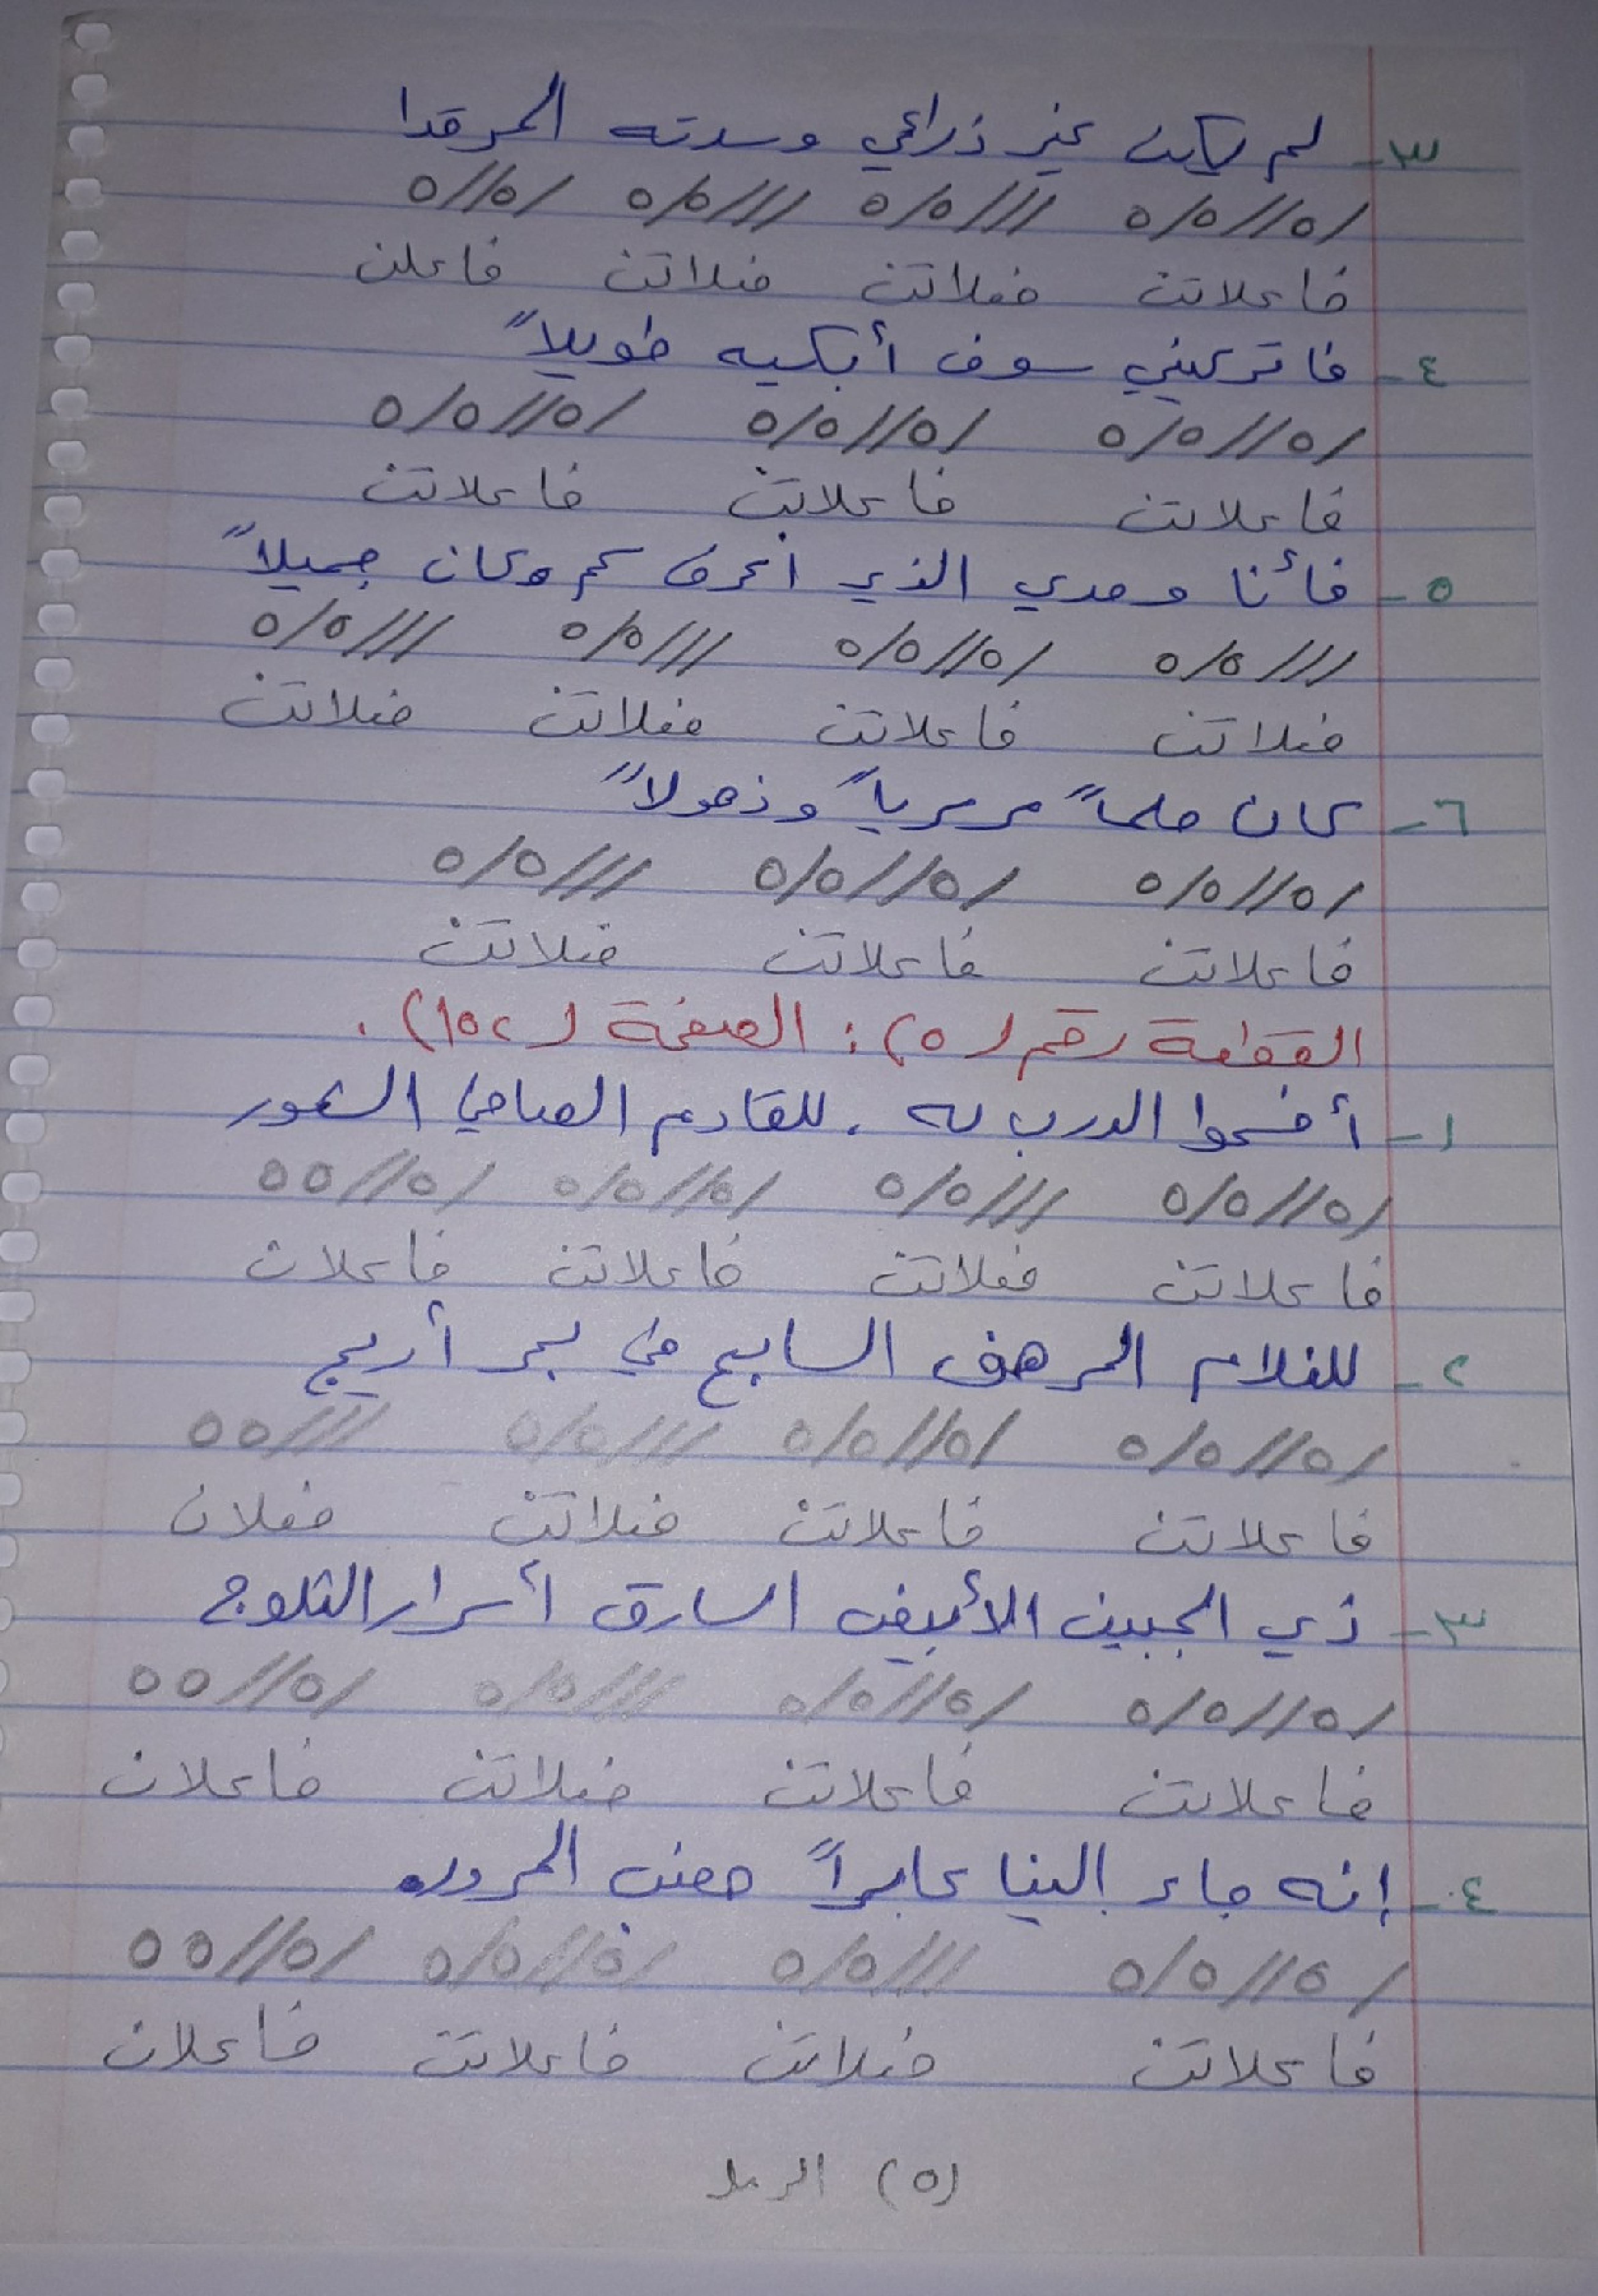 ٣- لم يكن غير ذراعي وسدته المرقدا
/٥//٥/٥ ///٥/٥ ///٥/٥ /٥//٥
فاعلاتن فعلاتن فعلاتن فاعلن
٤- فاتركيني سوف أبكيه طويلاً
/٥//٥/٥ /٥//٥/٥ /٥//٥/٥
فاعلاتن فاعلاتن فاعلاتن
٥- فأنا وحدي الذي اعرف كم وكان جميلاً
///٥/٥ /٥//٥/٥ ///٥/٥ ///٥/٥
فعلاتن فاعلاتن فعلاتن فعلاتن
٦- كان حلماً سريرياً وذهولاً
/٥//٥/٥ /٥//٥/٥ ///٥/٥
فاعلاتن فاعلاتن فعلاتن
القطعة رقم (٥): الصفحة (١٥٢).
١- أفسحوا الدرب له. للقادم الصافي الشعور
/٥//٥/٥ ///٥/٥ /٥//٥/٥ /٥//٥٥
فاعلاتن فعلاتن فاعلاتن فاعلان
٢- للغلام المرهف السابح في بحر أريج
/٥//٥/٥ /٥//٥/٥ ///٥/٥ ///٥٥
فاعلاتن فاعلاتن فعلاتن فعلان
٣- ذي الجبين الأبيض السارق أسرار الثلوج
/٥//٥/٥ /٥//٥/٥ ///٥/٥ /٥//٥٥
فاعلاتن فاعلاتن فعلاتن فاعلان
٤- إنه جاء إلينا عابراً خصب المرور
/٥//٥/٥ ///٥/٥ /٥//٥/٥ /٥//٥٥
فاعلاتن فعلاتن فاعلاتن فاعلان
(٥) الرمل